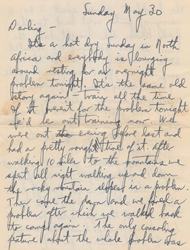 Sunday May 30
Darling —
It's a hot dry Sunday in North
Africa and everybody is lounging
around resting for an overnight
problem tonight. It's the same old
story again — Train all the time.
except for the problem tonight
we'll be out training now. We
were out the evening before last and
had a pretty rough time of it. After
walking 10 miles to the mountains we
spent all night walking up and down
the rocky mountain slopes in a problem
They came the dawn and we had a
problem after which we walked back
to camp again. The only consoling
feature about the whole problem was